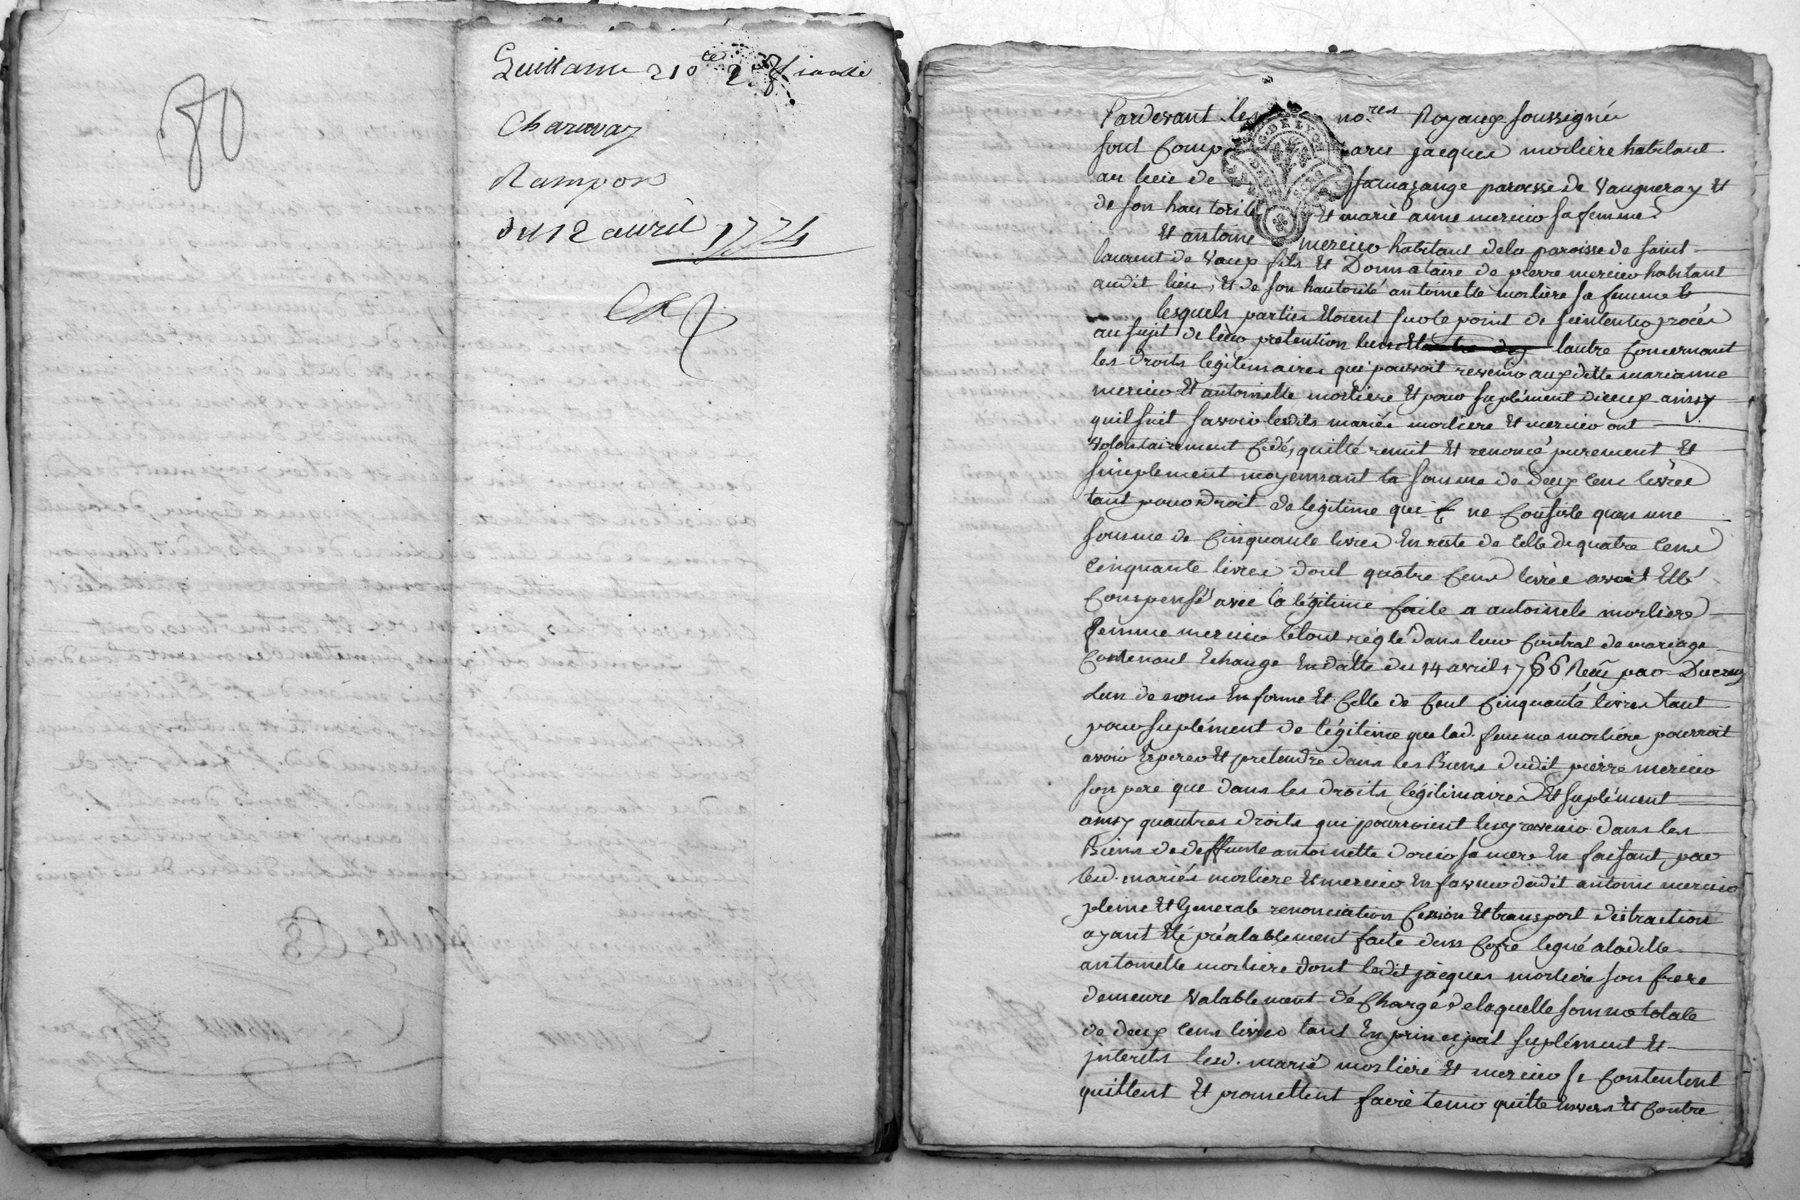 80
Quittance 210ᵗᵗ
Charvay
Rampon
du 12 avril 1774
Pardevant les no.res Royaux soussignés
sont comp jacques morliere habitant
au lieu de paroisse de vaugneray Et
de son hautorité Et marie anne mercier sa femme
Et antoine mercier habitant de la paroisse de saint
laurent de vaux fils Et Donnataire de pierre mercier habitant
audit lieu, Et de son hautorité antoinette morliere sa femme
lesquels parties Etoient sur le point de procés
au sujet de leur pretention lautre Concernant
les droits legitimaires qui pouvoit revenir auxditte marianne
mercier Et antoinette morliere Et pour suplément diceux ainsy
quil suit savoir lesdits mariés morliere Et mercier ont
volontairement Cédé, quitté remit Et renoncé purement Et
simplement moyennant la somme de Deux Cens livres
tant pour droit de legitime qui ne Consiste quen une
somme de Cinquante livres En reste de Celle de quatre Cens
Cinquante livres dont quatre Cens livres avoit Etté
Compensés avec la légitime faite a antoinette morliere
femme mercier le tout réglé dans leur Contrat de mariage
Contenant Echange En datte du 14 avril 1766 Reçu par Ducreux
Lun de nous En forme Et Celle de Cent Cinquante livres tant
pour suplément de légitime que lad. femme morliere pourroit
avoir Esperer Et pretendre dans les Biens dudit pierre mercier
son pere que dans les droits legitimaires Et suplément
ainsy quautres droits qui pourroient luy revenir dans les
Biens de deffunte antoinette sa mere En faisant par
lesd. mariés morliere Et mercier En faveur dudit antoine mercier
pleine Et Generale renonciation Cession Et transport distraction
ayant Eté préalablement faite dun Cofre legué a laditte
antoinette morliere dont ledit jacques morliere son frere
demeure valablement déChargé de laquelle somme totale
de deux Cens livres tant En principal suplément Et
interets lesd. mariés morliere Et mercier se Contentent
quittent Et promettent faire tenir quitte Envers Et Contre